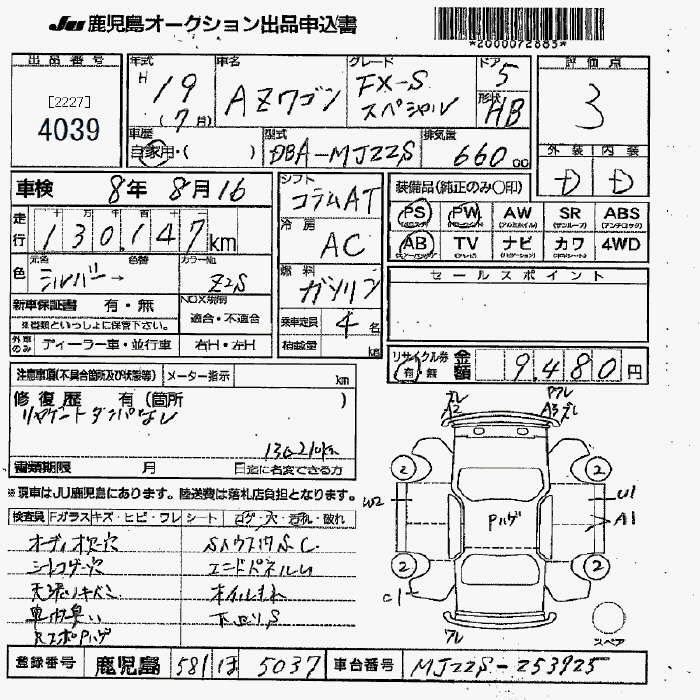 JU 鹿児島オークション出品申込書
*2000072883*
出品番号
[2227]
4039
年式 H 19 (7月)
車名 AZワゴン
グレード FX-S スペシャル
ドア 5
形状 HB
評価点 3
車歴 自家用・( )
型式 DBA-MJ22S
排気量 660 cc
外装 内装
D D
車検 8年 8月16
シフト コラムAT
装備品(純正のみ○印)
PS PW AW SR ABS
AB TV ナビ カワ 4WD
走行 十 万 千 百 十
130,147km
冷房 AC
色 元色 シルバー → 色替 カラーNo. Z2S
燃料 ガソリン
セールスポイント
新車保証書 有・無
※書類といっしょに保管下さい。
NOX規制 適合・不適合
乗車定員 4名
外車のみ ディーラー車・並行車 右H・左H
積載量 kg
リサイクル券 有・無 金額 9,480円
注意事項(不具合箇所及び状態等) メーター指示 km
修復歴 有(箇所 )
リヤゲートダンパなし
136210km
書類期限 月 日迄に名変できる方
※現車はJU鹿児島にあります。陸送費は落札店負担となります。
検査員 Fガラスキズ・ヒビ・ワレ シート コゲ・穴・汚れ・破れ
オーディオ穴
エンドパネルU
オイルもれ
下廻りS
車内臭い
ズレ A2
ワレ A3 ズレ
2 2
W2
Pハゲ
U1
A1
2 2
C1
ワレ
スペア
登録番号 鹿児島 581 ほ 5037 車台番号 MJ22S-253925